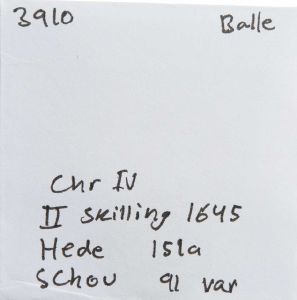 3910 Balle
Chr IV
II skilling 1645
Hede 151a
Schou 91 var